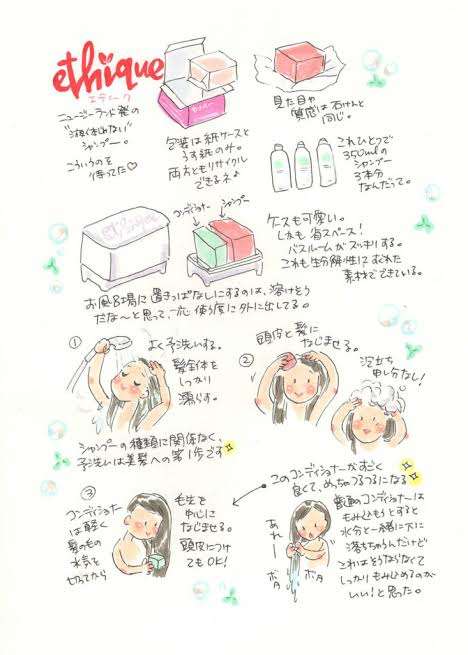 ethique
エティーク
ニュージーランド発の
"液体じゃない"
シャンプー。
こういうのを
待ってた♡
包装は紙ケースと
うす紙のみ。
両方ともリサイクル
できるネ♪
見た目や
質感は石けんと
同じ。
これひとつで
350mlの
シャンプー
3本分
なんだって。
ethique
コンディショナー
シャンプー
ケースも可愛い。
しかも省スペース!
バスルームがスッキリする。
これも生分解性にすぐれた
素材でできている。
お風呂場に置きっぱなしにするのは、溶けそう
だな〜と思って、一応使う度に外に出してる。
①
よく予洗いする。
髪全体を
しっかり
濡らす。
シャンプーの種類に関係なく、
予洗いは美髪への第1歩です
②
頭皮と髪に
なじませる。
泡立ち
申し分なし!
③
コンディショナー
は軽く
髪の毛の
水気を
切ってから
毛先を
中心に
なじませる。
頭皮につけ
てもOK!
このコンディショナーがすごく
良くて、めっちゃつるつるになる
普通のコンディショナーは
もみ込もうとすると
水分と一緒に下に
落ちちゃうんだけど
これはそうならなくて
しっかりもみ込めるのが
いい!と思った。
あれー
ボタ
ボタ